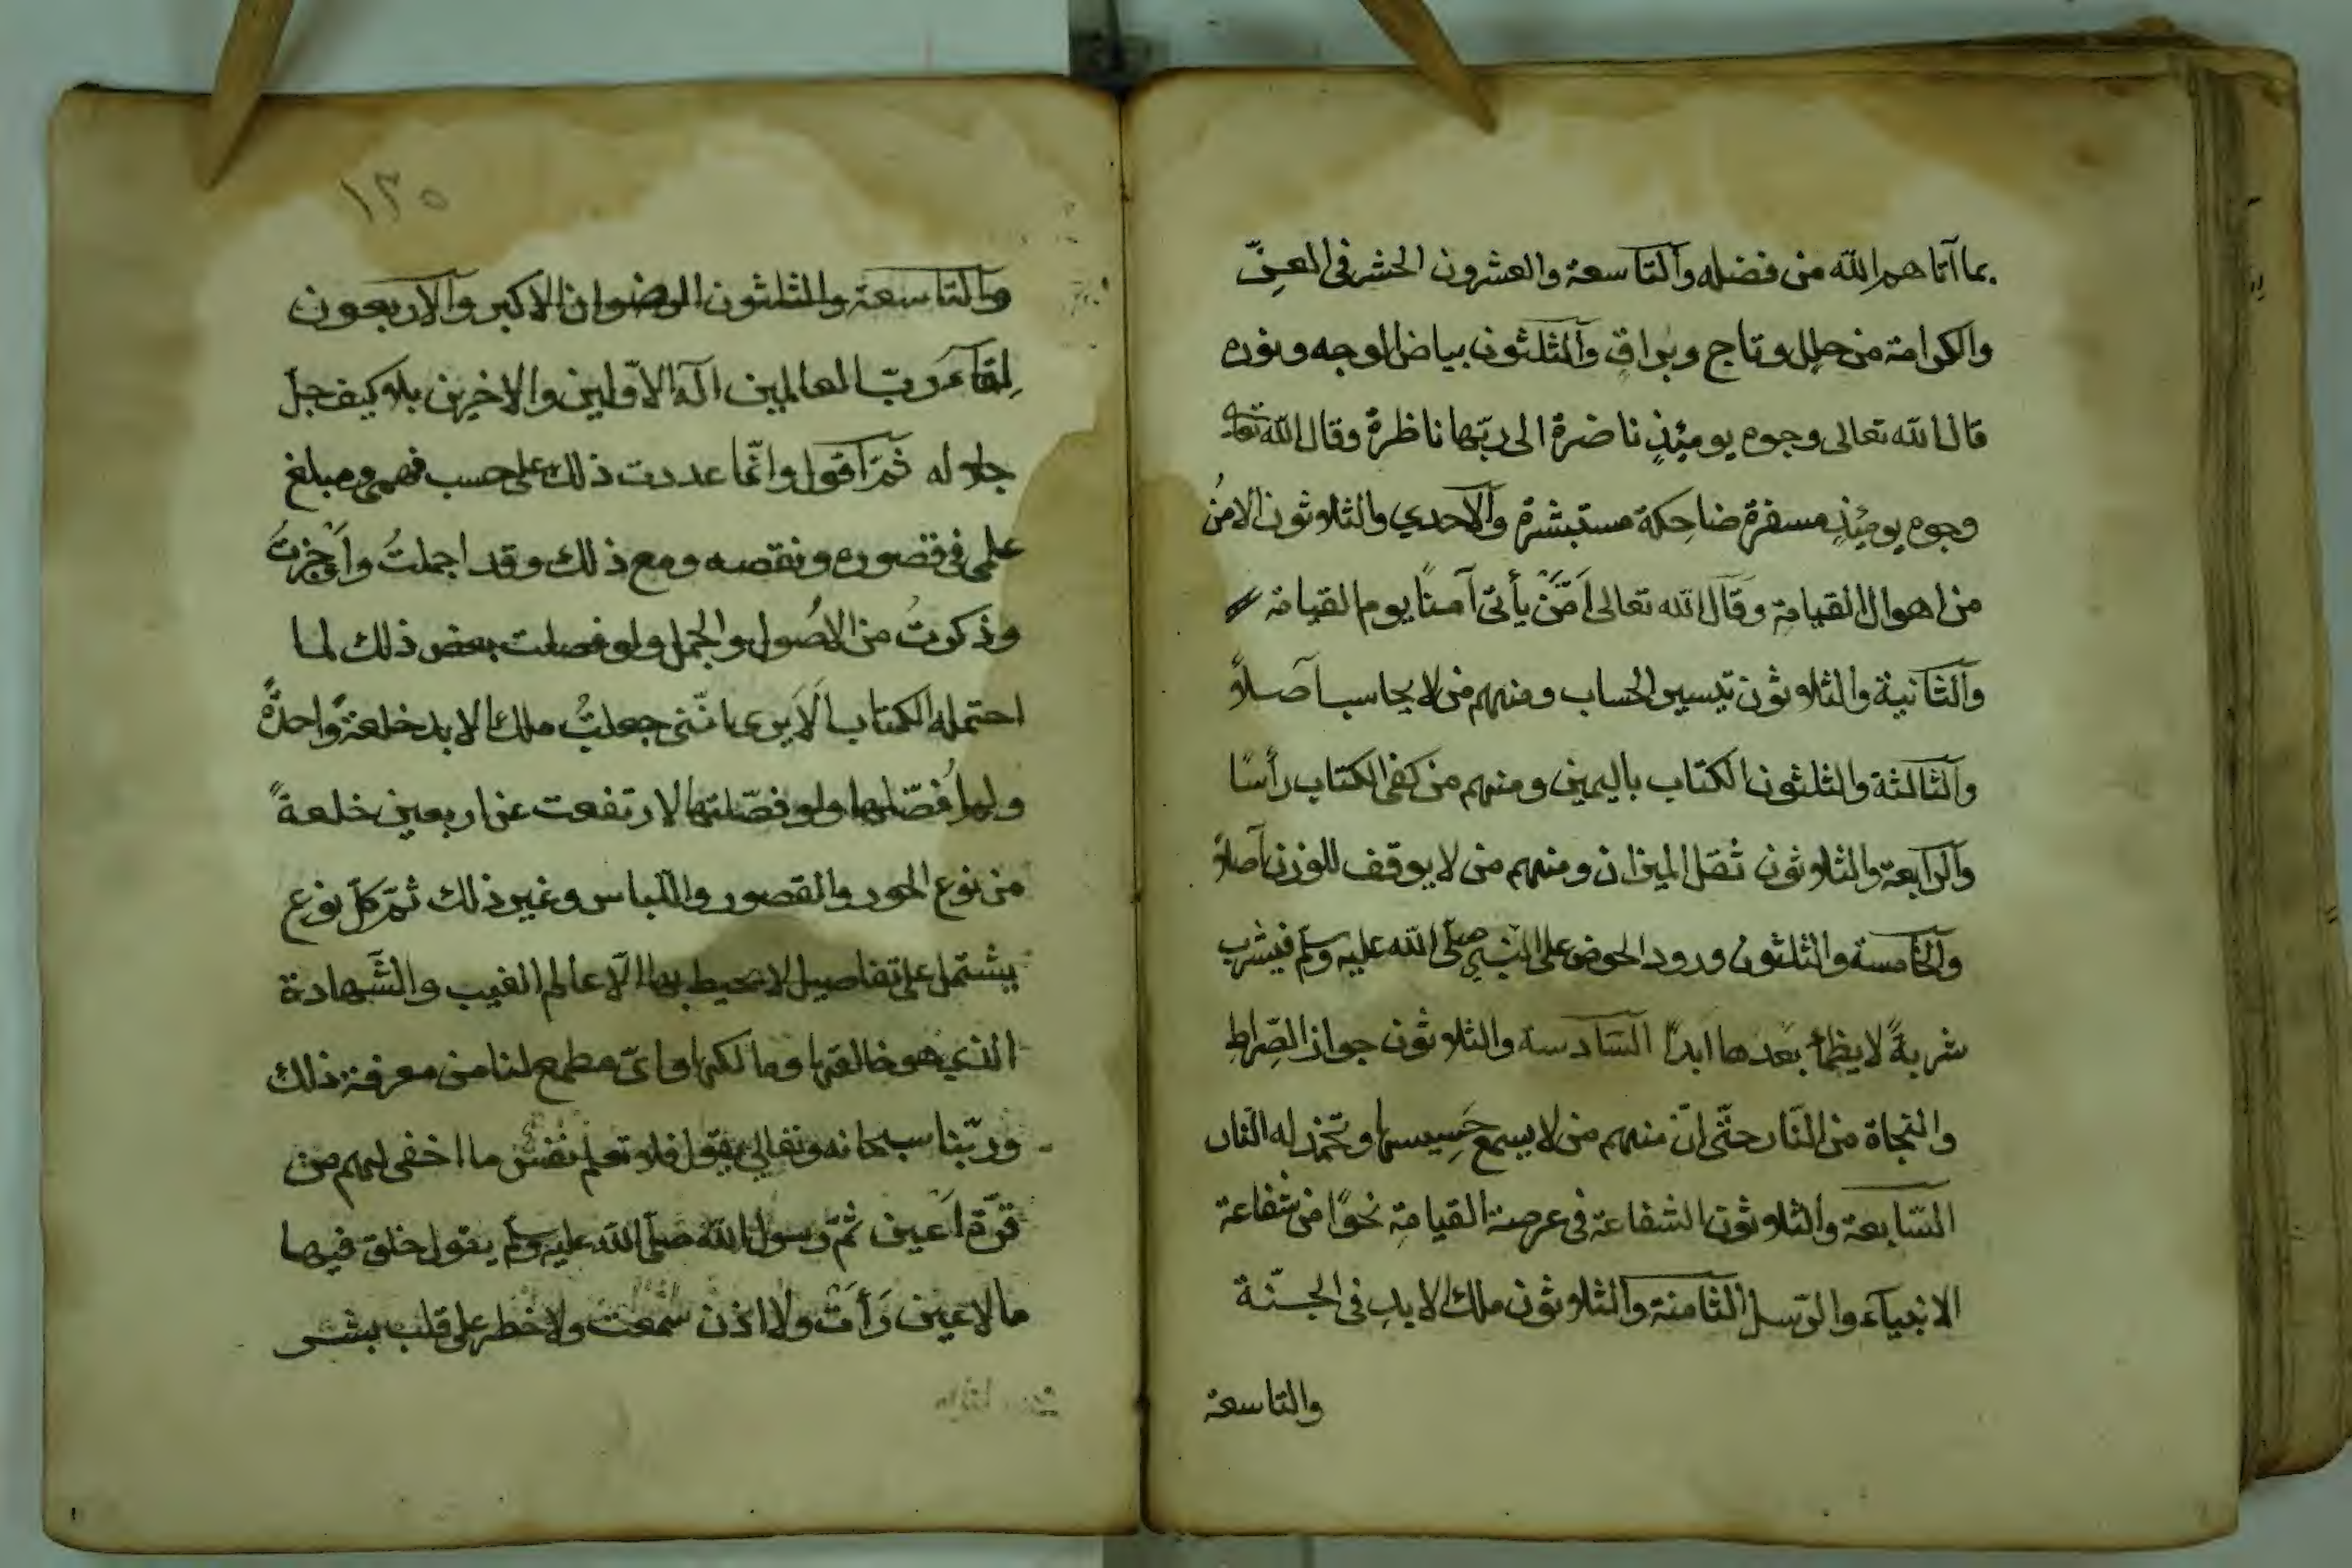 بما آتاهم الله من فضله والتاسعة والعشرون الحشر في العزّ
والكرامة من حلل وتاج وبراق والثلثون بياض الوجه ونوره
قال الله تعالى وجوه يومئذٍ ناضرة الى ربّها ناظرة وقال الله تعالى
وجوه يومئذٍ مسفرة ضاحكة مستبشرة والاحدي والثلاثون الامنُ
من اهوال القيامة وقال الله تعالى اَمَّنْ يأتى آمنًا يوم القيامة
والثانية والثلاثون تيسير الحساب ومنهم من لا يحاسب اصلاً
والثالثة والثلثون الكتاب باليمين ومنهم من كفى الكتاب رأسًا
والرابعة والثلاثون ثقل الميزان ومنهم من لا يوقف للوزن اصلاً
والخامسة والثلثون ورود الحوض على النبي صلّى الله عليه وسلّم فيشرب
شربةً لا يظمأ بعدها ابداً السّادسة والثلاثون جواز الصّراط
والنجاة من النّار حتّى انّ منهم من لا يسمع حَسِيسها وتخمد له النّار
السّابعة والثلاثون الشفاعة في عرصة القيامةِ نحوًا من شفاعة
الانبيآء والرّسل الثامنة والثلاثون ملك الابدِ في الجنّة
والتاسعة
١٣٥
والتاسعة والثلثون الرضوان الاكبر والاربعون
لِقآء ربّ العالمين اله الاوّلين والاخرين بلا كيف جلّ
جلاله ثمّ اقول وانّما عددت ذلك على حسب فهمى ومبلغ
علمى في قصوره ونقصه ومع ذلك وقد اجملتُ واَوْجزتُ
وذكرتُ من الاُصول والجمل ولو فصلت بعض ذلك لما
احتمله الكتاب اَلَا يرى انّني جعلتُ ملك الابد خلعةً واحدةً
ولو فصّلتها لارتفعت عن اربعين خلعةً
من نوع الحور والقصور واللّباس وغير ذلك ثمّ كلّ نوع
يشتمل على تفاصيل لا يحيط بها الّا عالم الغيب والشّهادة
الذي هو خالقها ومالكها واىّ مطمع لنا من معرفة ذلك
وربّنا سبحانه وتعالى يقول فلا تعلم نفس ما اخفى لهم من
قرّة اَعين ثمّ رسول الله صلّى الله عليه وسلّم يقول خلق فيها
ما لا عين رَأَتْ ولا اذن سمعت ولا خطر على قلب بشر